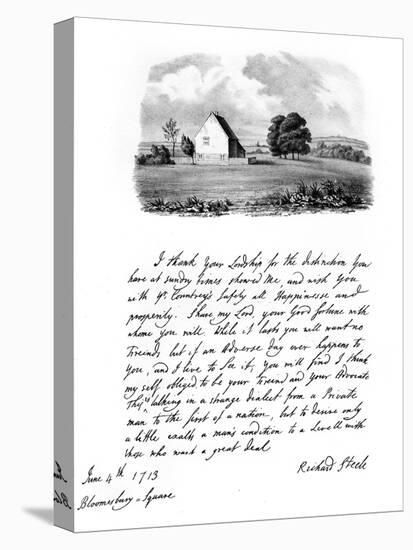 I thank Your Lordship for the distinction You
have at sundry times showed Me, and wish You
with Yr Countrey's Safety all Happinesse and
prosperity. Share my Lord, your Good fortune with
whome You will, While it lasts you will want no
Friends but if an Adverse Day ever happens to
You, and I live to See it, you will find I think
my self obliged to be your Friend and Your Advocate
This is talking in a strange dialect from a Private
man to the first of a nation, but to desire only
a little exalts a man's condition to a Levell with
those who want a great deal
Richard Steele
June 4th 1713
Bloomesbury = Square